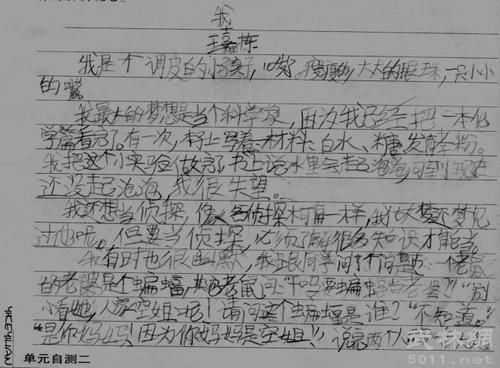 我
王嘉栋
我是个调皮的小孩子,10岁。瘦瘦的,大大的眼珠,一只小小
的嘴
我最大的梦想是当个科学家,因为我已经把一本化
学篇看完了。有一次,书上写着:材料:白水、糖、发酵粉。
我把这个小实验做完了书上说水里会起泡泡可到现在
还没起泡泡,我很失望。
我还想当侦探,像名侦探柯南一样,我做梦都梦见
过他呢。但要当侦探,必须了解很多知识才能当。
我有时也很幽默,我跟同学问了个问题:一佬鼠
的老婆是个蝙蝠,老鼠问"干吗要蝙蝠当老婆""别
小看她,人家空姐呢!请问这个蝙蝠是谁?"不知道。"
"是你妈妈!因为你妈妈是空姐!"说完两个人
单元自测二
YICEYILIAN
武林网
5011.net